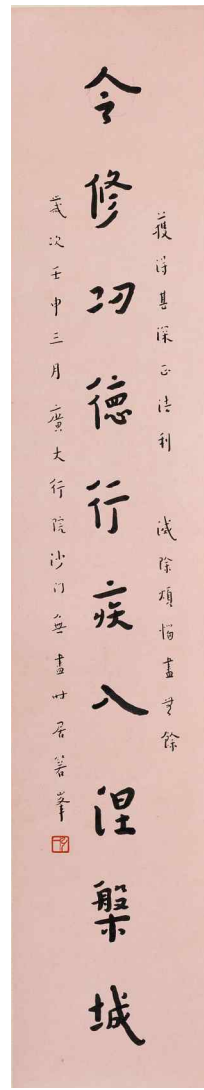 獲得甚深正法利　滅除煩惱盡無餘
令修功德行疾入涅槃城
歲次壬申三月廣大行院沙門無盡時居蓍峯